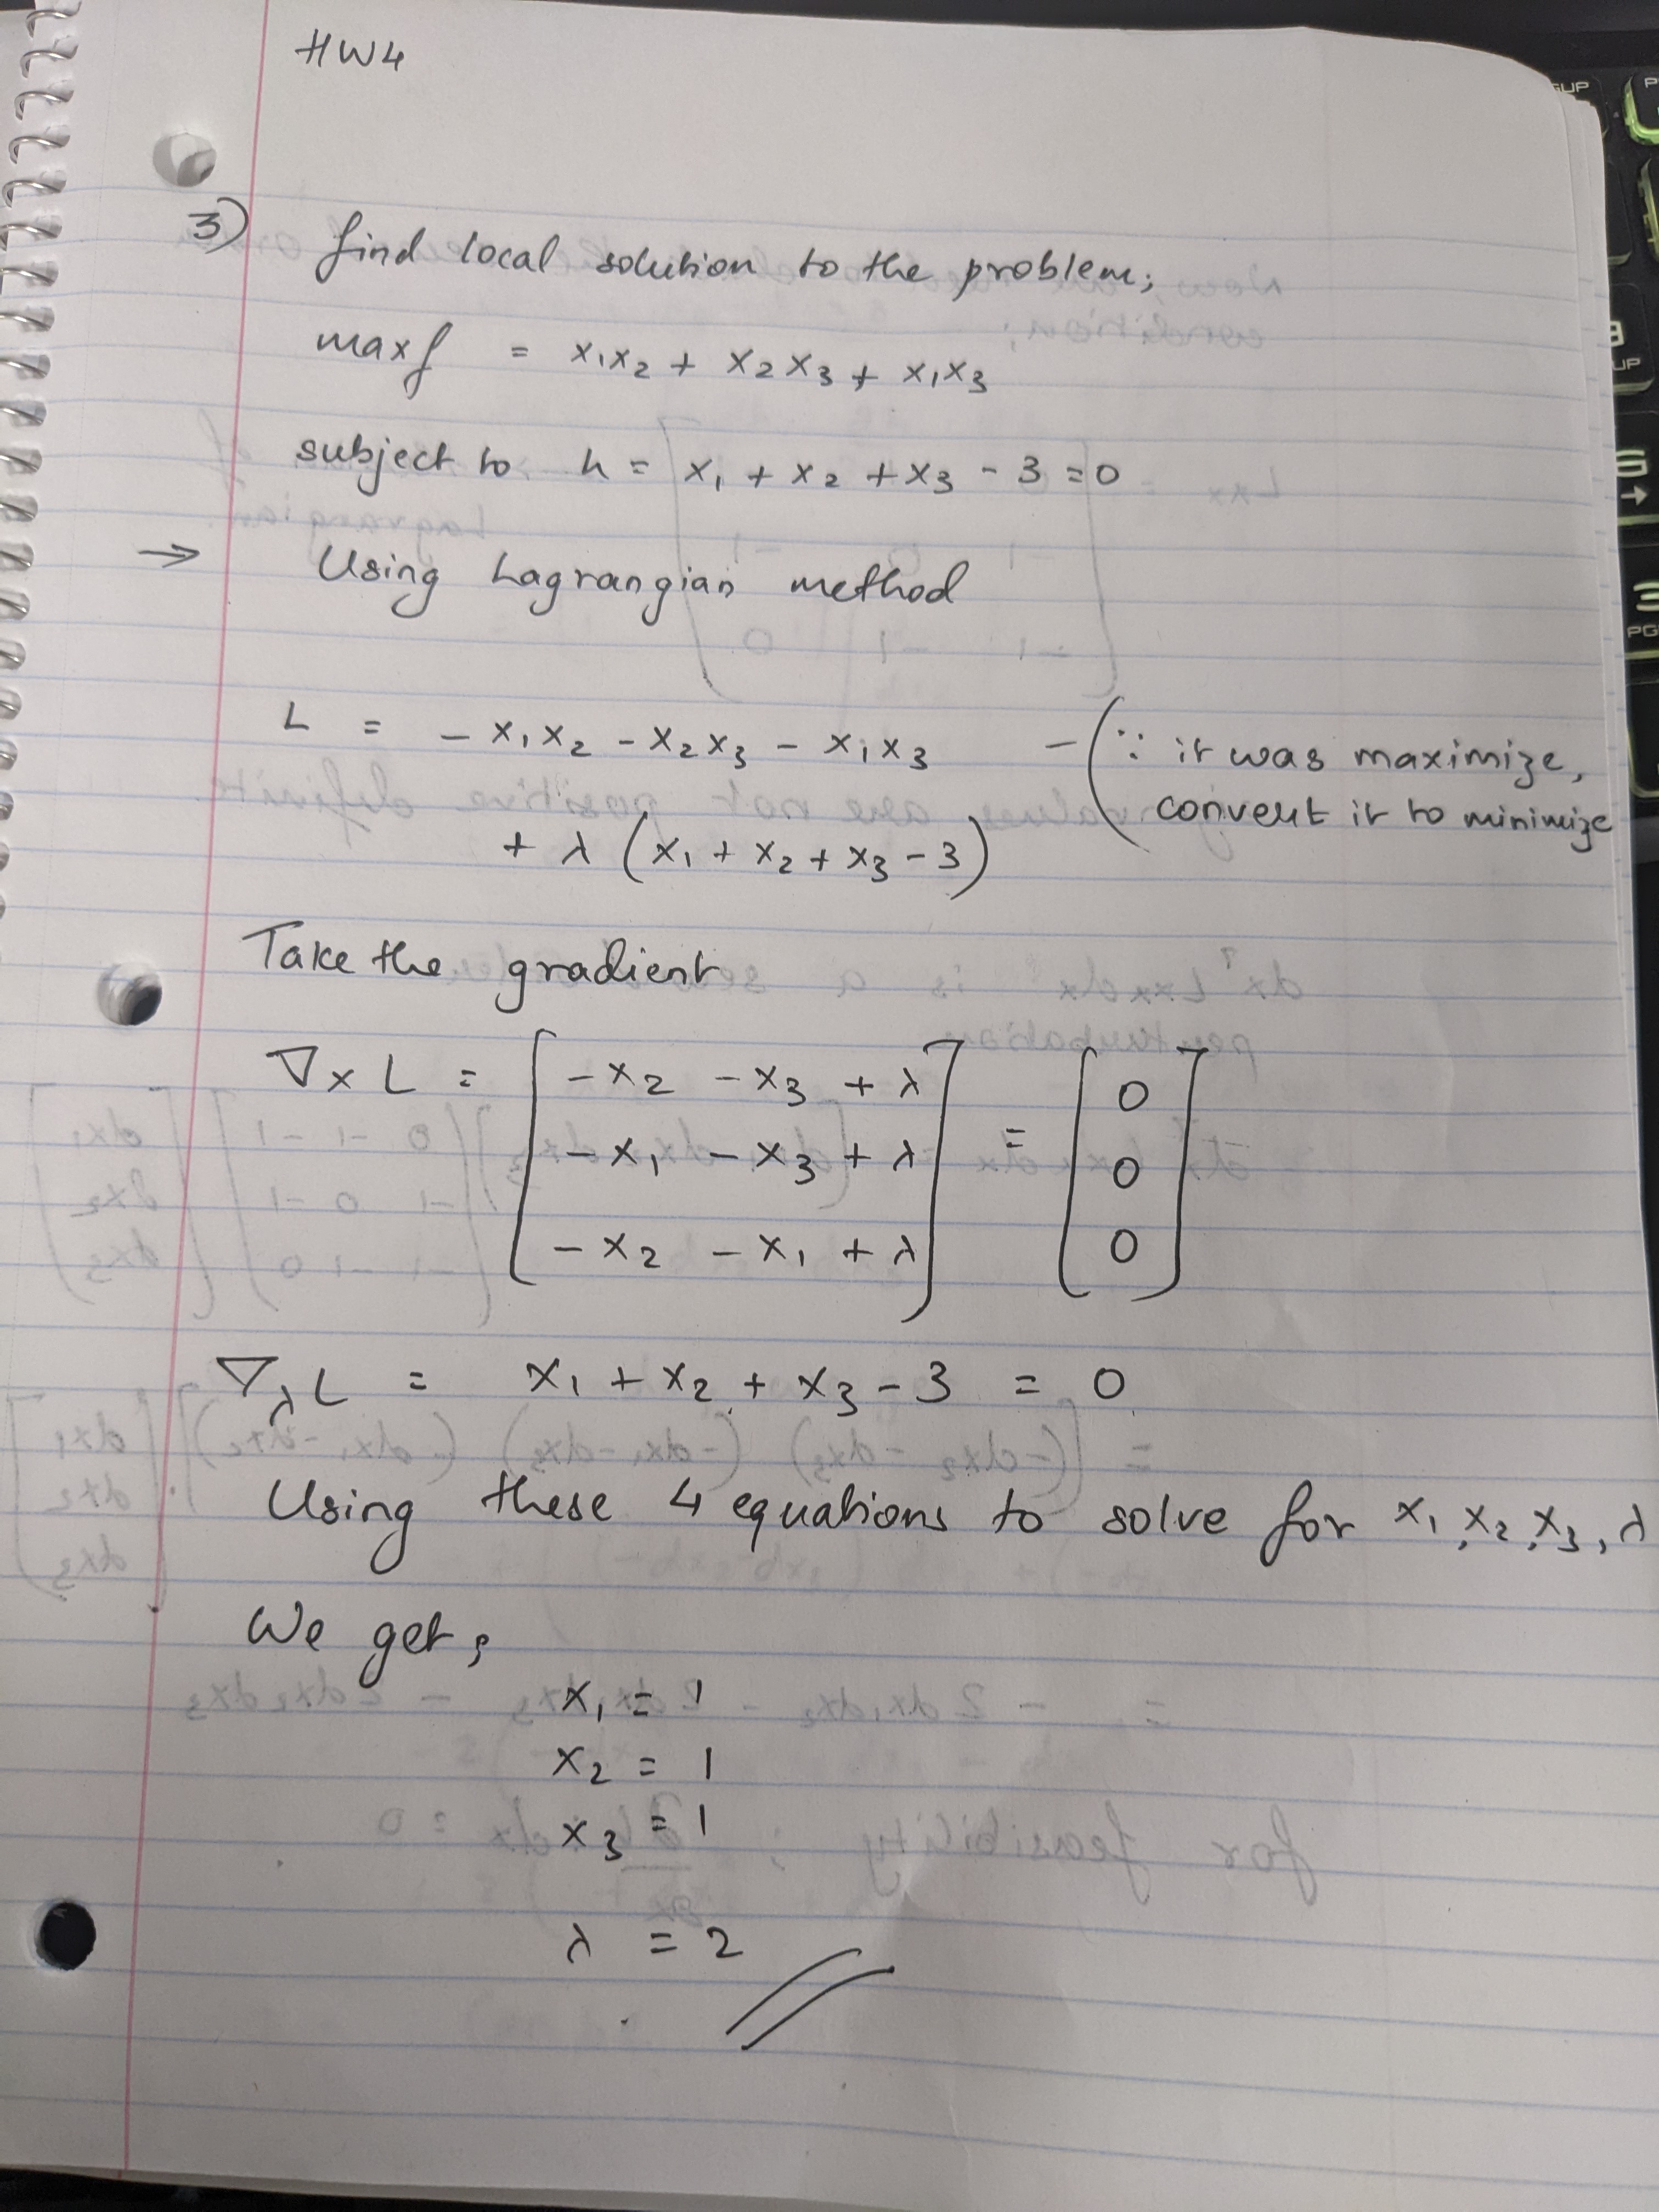 HW4
3) find local solution to the problem;
max f = x₁x₂ + x₂x₃ + x₁x₃
subject to h = x₁ + x₂ + x₃ - 3 = 0
→ Using Lagrangian method
L = - x₁x₂ - x₂x₃ - x₁x₃ - (∵ it was maximize,
convert it to minimize
+ λ (x₁ + x₂ + x₃ - 3)
Take the gradient
∇x L = [ -x₂ -x₃ + λ ] = [ 0 ]
[ -x₁ - x₃ + λ ] [ 0 ]
[ -x₂ - x₁ + λ ] [ 0 ]
∇λL = x₁ + x₂ + x₃ - 3 = 0
Using these 4 equations to solve for x₁, x₂, x₃, λ
We get,
x₁ = 1
x₂ = 1
x₃ = 1
λ = 2